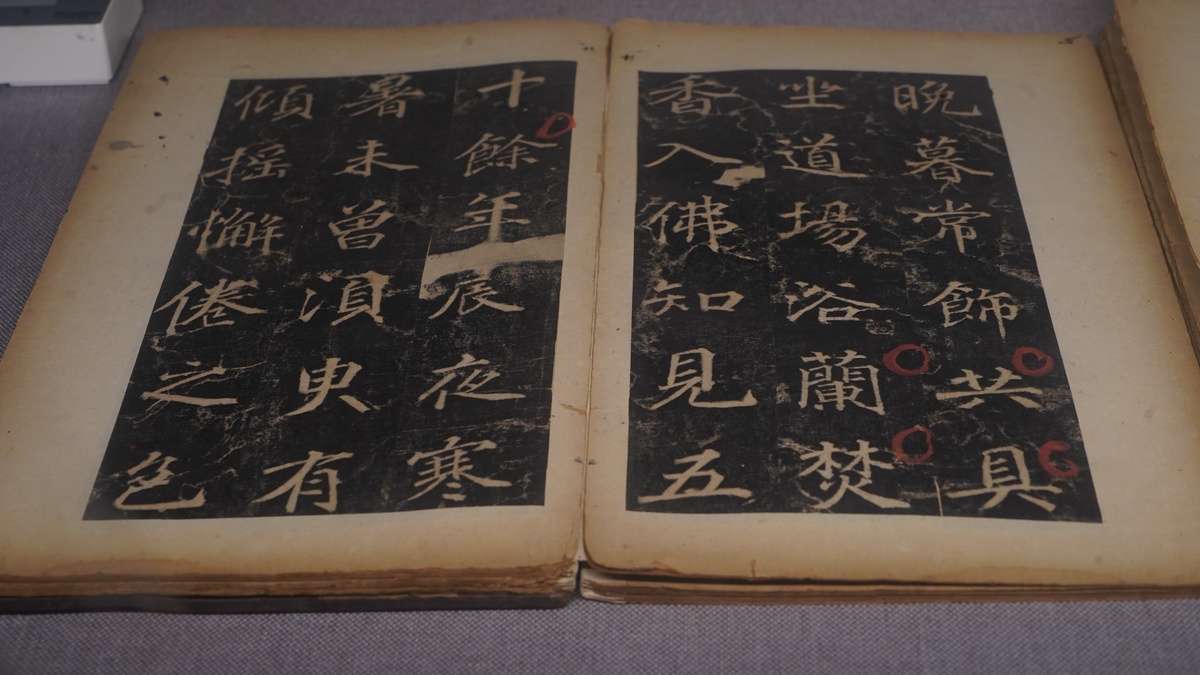 晚暮常飾共具
坐道場浴蘭焚
香入佛知見五
十餘年辰夜寒
暑未曾湏臾有
傾搖懈倦之色